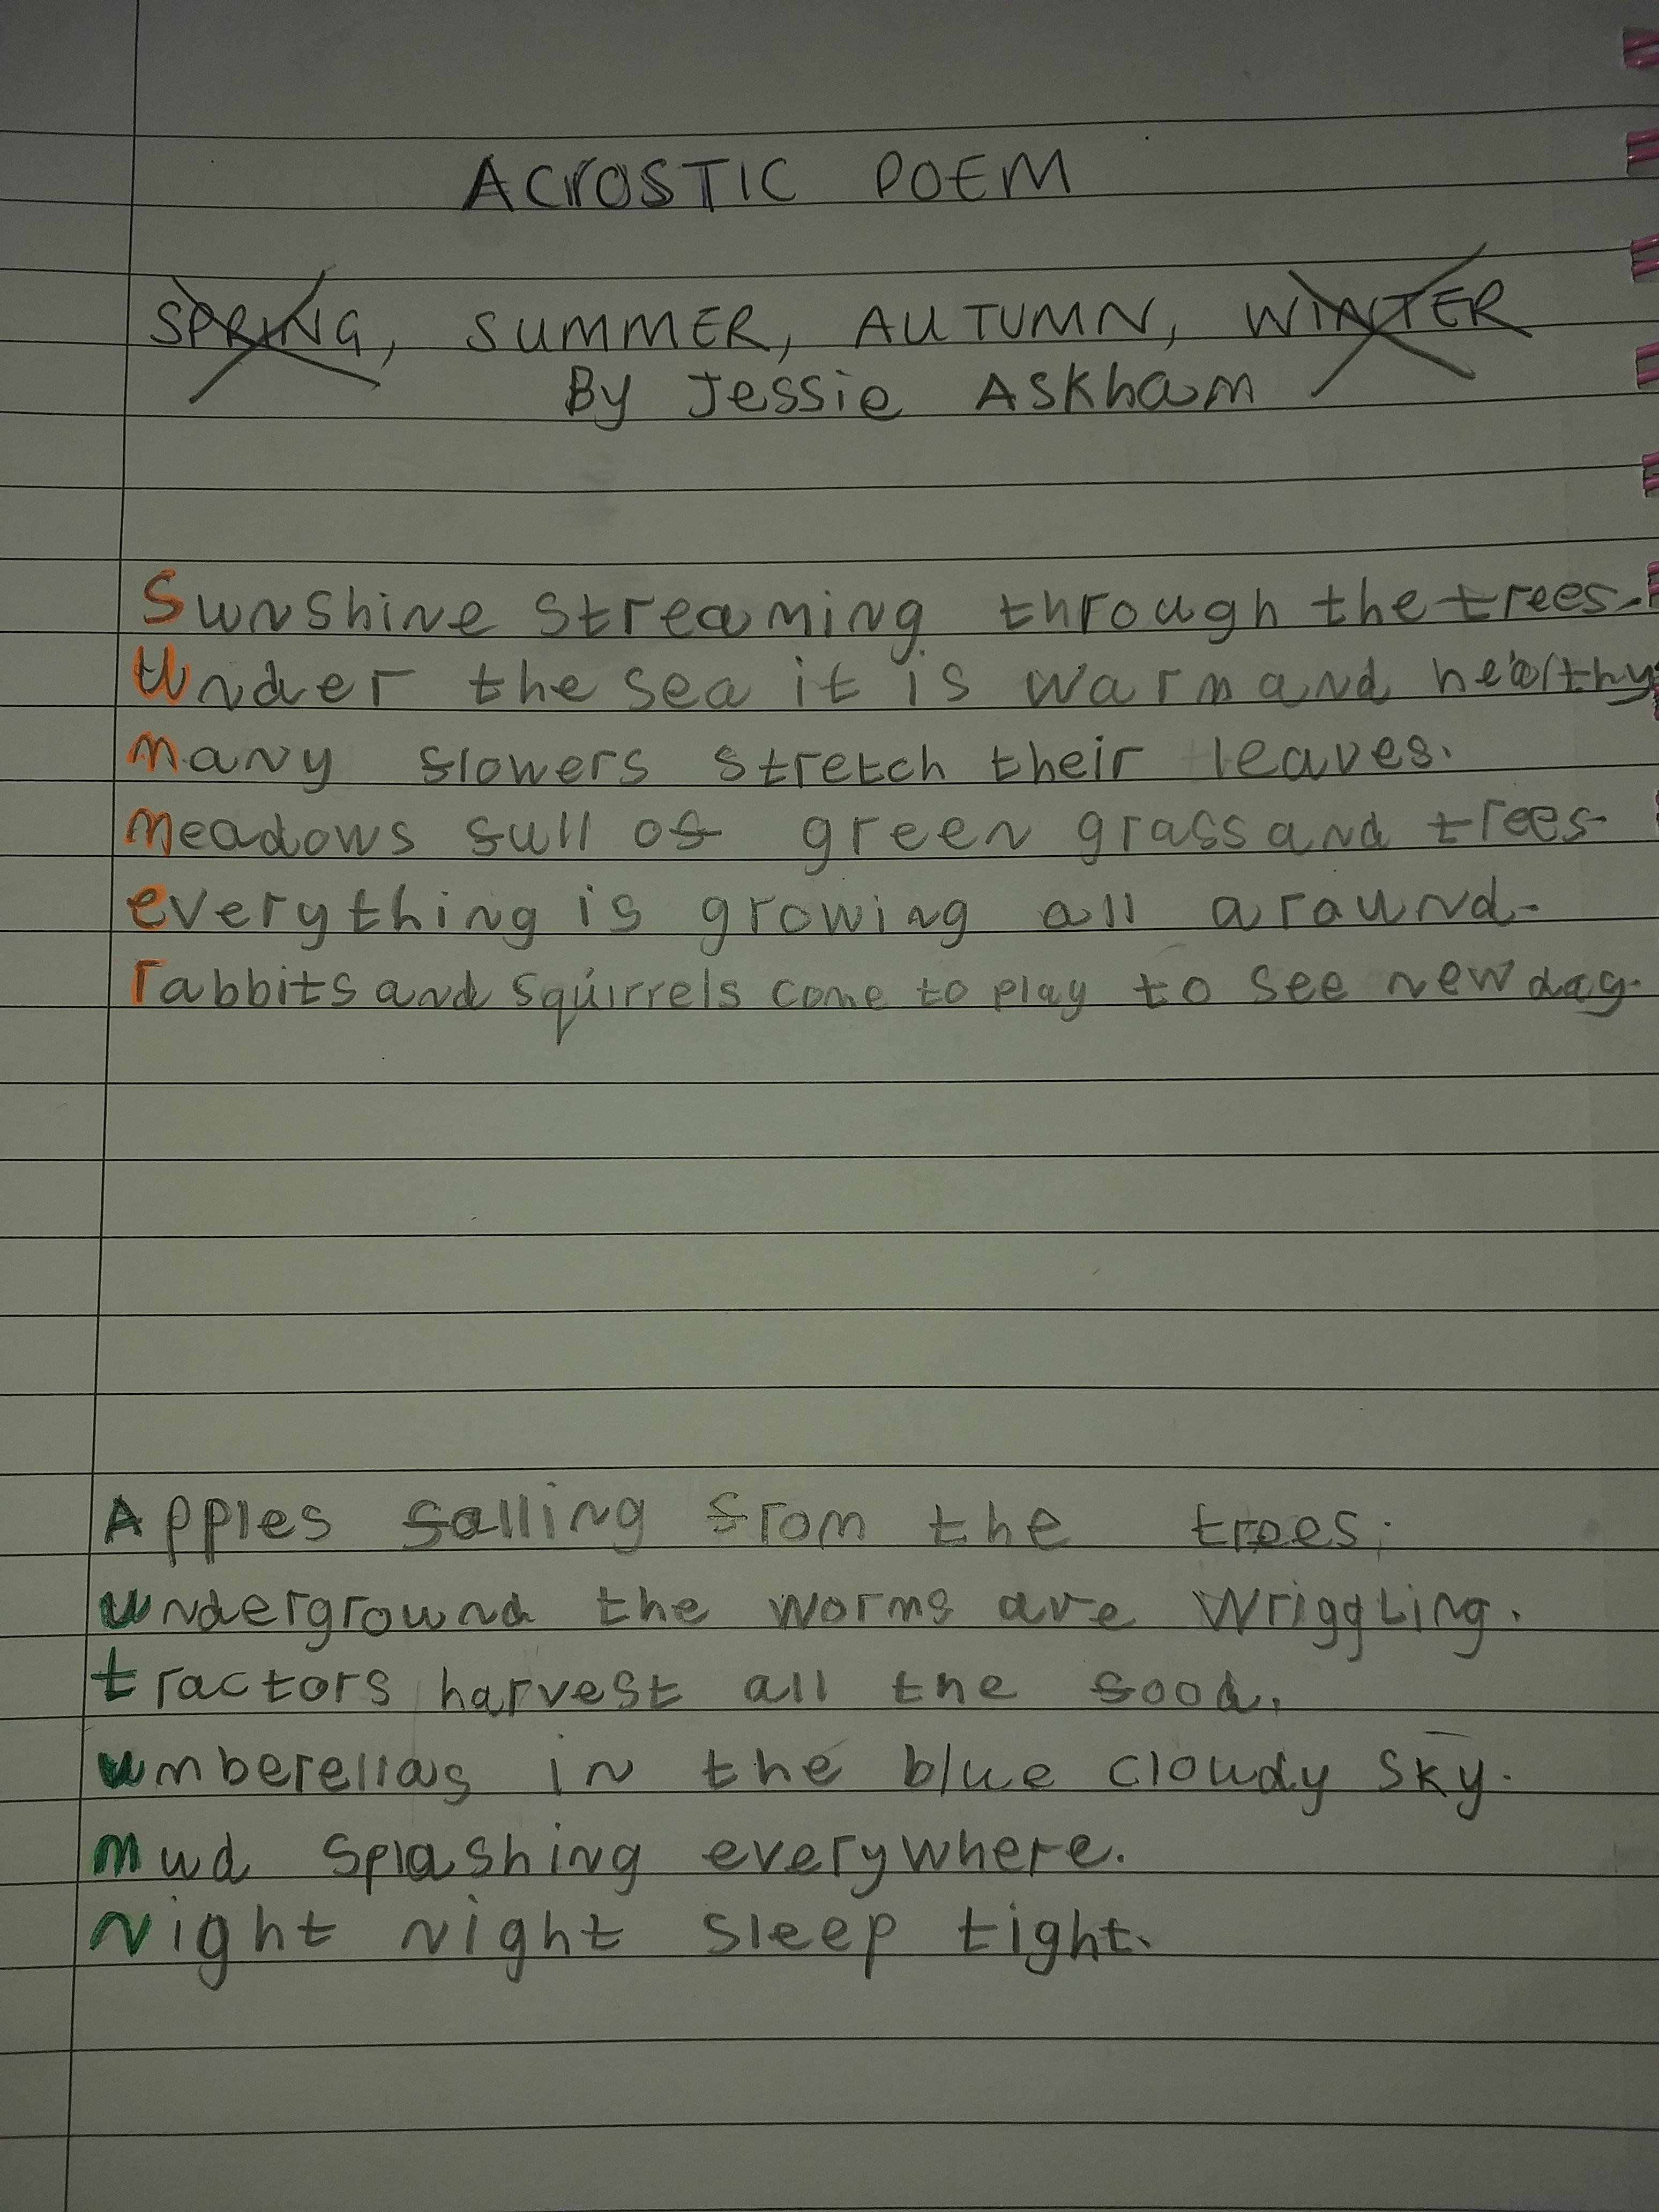 ACROSTIC POEM
SPRING, SUMMER, AUTUMN, WINTER
By Jessie Askham
Sunshine streaming through the trees.
Under the sea it is warm and healthy
many flowers stretch their leaves.
meadows full of green grass and trees.
everything is growing all around.
rabbits and squirrels come to play to see new day.
Apples falling from the trees.
underground the worms are wriggling.
tractors harvest all the food.
umberellas in the blue cloudy sky.
mud splashing everywhere.
night night sleep tight.